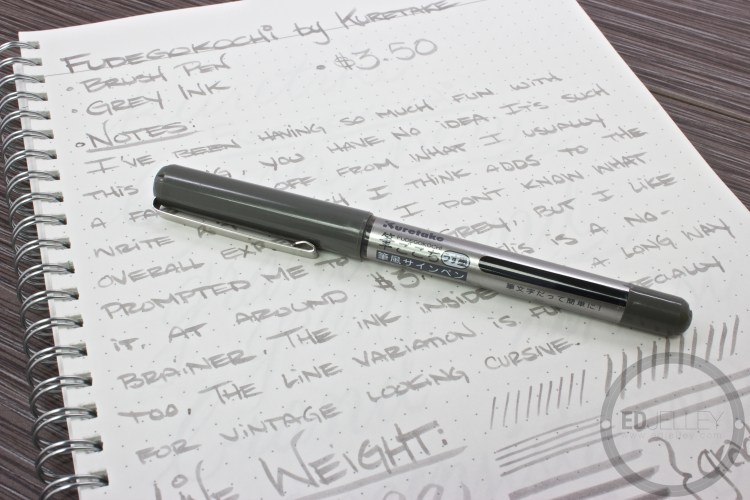 FUDEGOKOCHI by KURETAKE
• BRUSH PEN • $3.50
• GREY INK
• NOTES:
I'VE BEEN HAVING SO MUCH FUN WITH
THIS YOU HAVE NO IDEA. IT'S SUCH
A FAR OFF FROM WHAT I USUALLY
WRITE I THINK ADDS TO THE
OVERALL I DON'T KNOW WHAT
PROMPTED ME TO GREY, BUT I LIKE
IT. AT AROUND $ THIS IS A NO-
BRAINER. THE INK INSIDE A LONG WAY
TOO. THE LINE VARIATION IS ECIALLY
FOR VINTAGE LOOKING CURSIVE.
LINE WEIGHT:
Kuretake
FUDEGOKOCHI
筆風サインペン
筆文字だって簡単に!
ED JELLEY